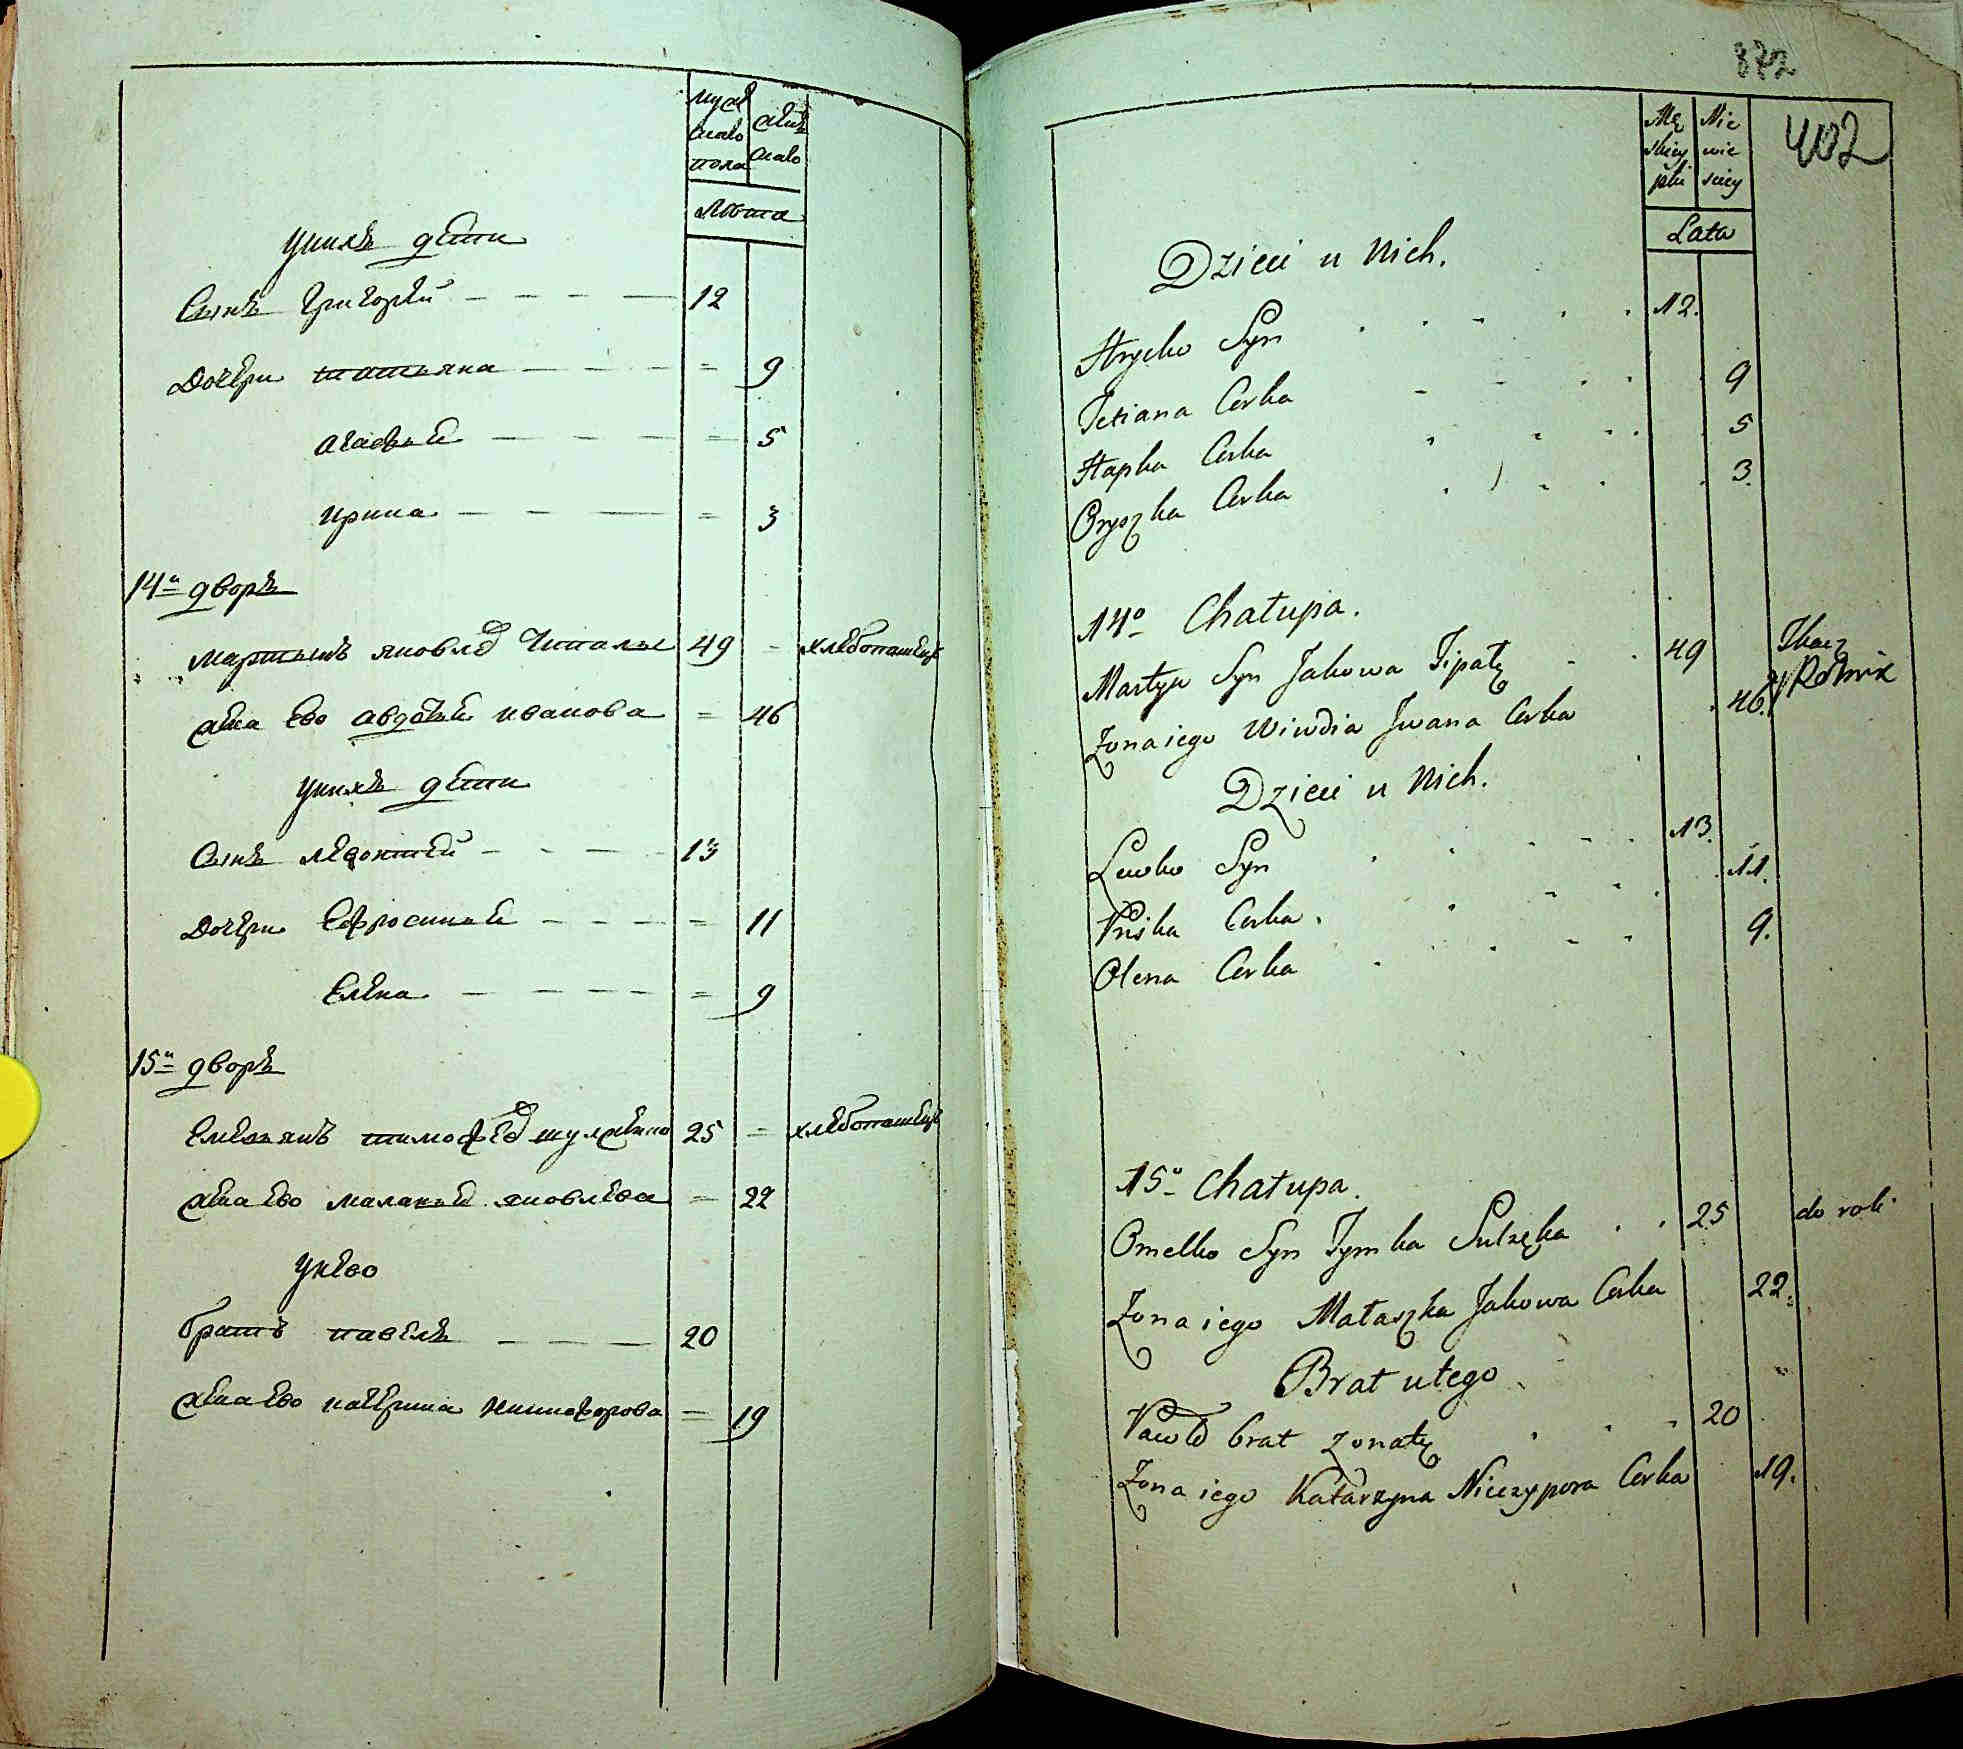 мужскаго пола
женскаго
Лѣта
у нихъ дети
Сынъ Григорей 12
Дочери татьяна 9
агафья 5
ирина 3
14й дворъ
мартынъ яковлев 49 хлебопашецъ
жена ево авдотья иванова 46
у нихъ дети
Сынъ леонтей 13
Дочери Ефросинья 11
Елена 9
15й дворъ
Емельянъ тимофеев шулженко 25 хлебопашецъ
жена ево маланья яковлева 22
у него
братъ павелъ 20
жена ево катерина никифорова 19
872
402
Męskiey płci
Niewieściey
Lata
Dzieci u Nich.
Hryćko Syn 12.
Tetiana Corka 9
Hapka Corka 5
Oryszka Corka 3.
14o Chałupa.
Martyn Syn Jakowa Tipały 49 Tkacz
Żona iego Wiwdia Jwana Corka 46. y Rolnik
Dzieci u Nich.
Lewko Syn 13.
Priśka Corka. 11.
Olena Corka 9.
15o Chałupa.
Omelko Syn Tymka Sulżeka 25 do roli
Żona iego Małaszka Jakowa Corka 22.
Brat u tego
Pawło brat żonaty 20
Żona iego Katarzyna Niczypora Corka 19.